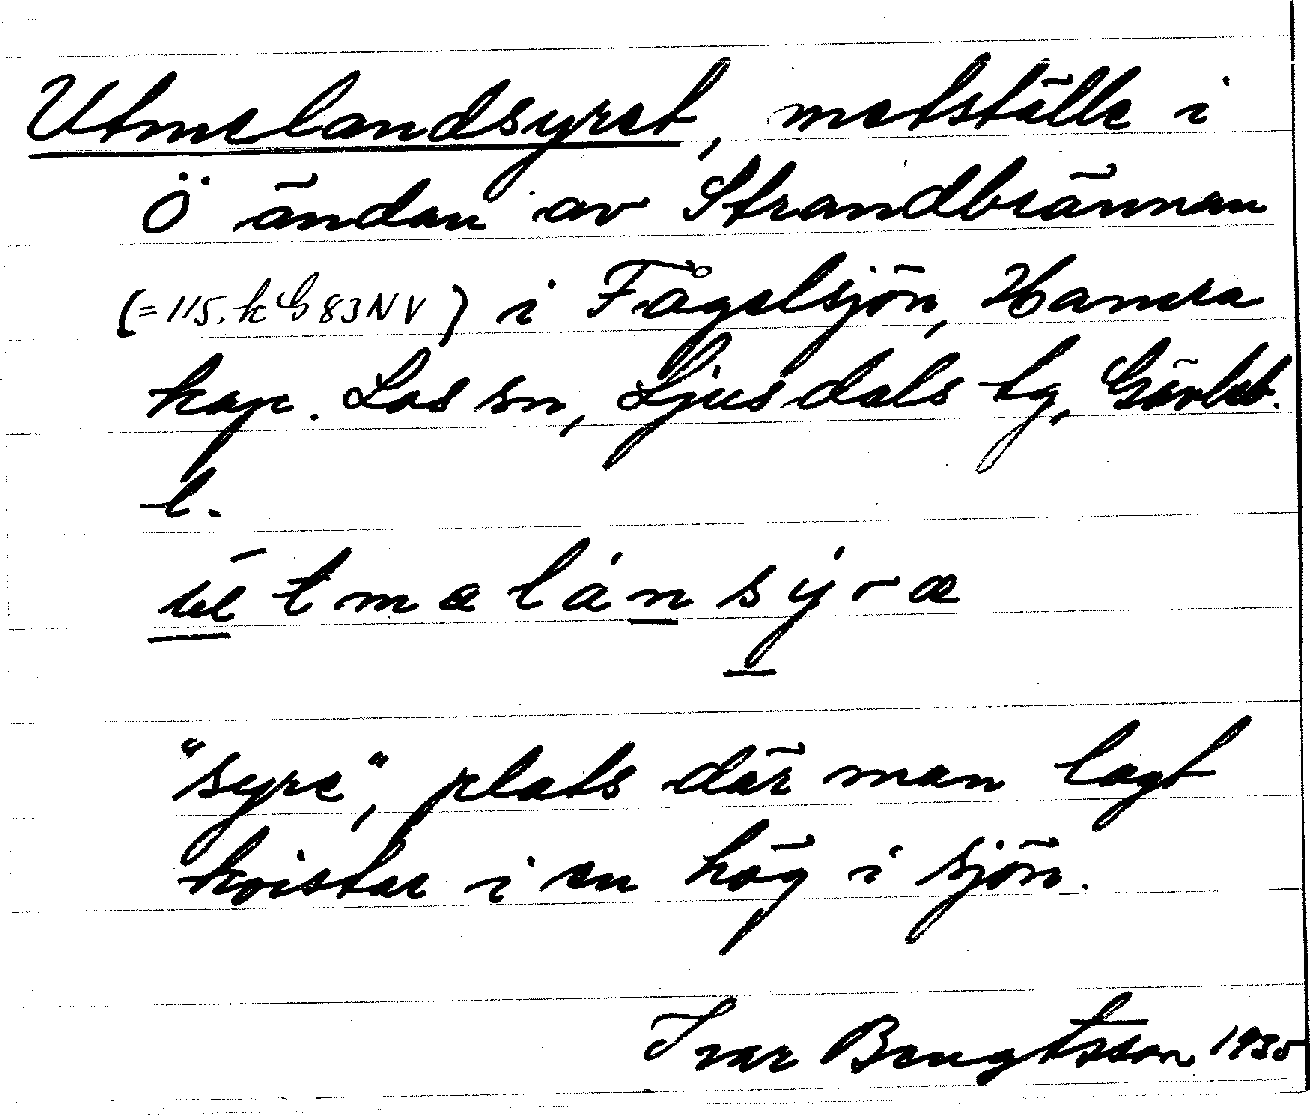 Utmelandsyret, metställe i
Ö ändan av Strandbrännan
(=115, k G 83 NV) i Fågelsjön, Hamra
kap. Los sn, Ljusdals tg, Gävleb.
l.
ūtmælånsýræ
"syre", plats där man lagt
kvistar i en hög i sjön.
Ivar Bengtsson 1935